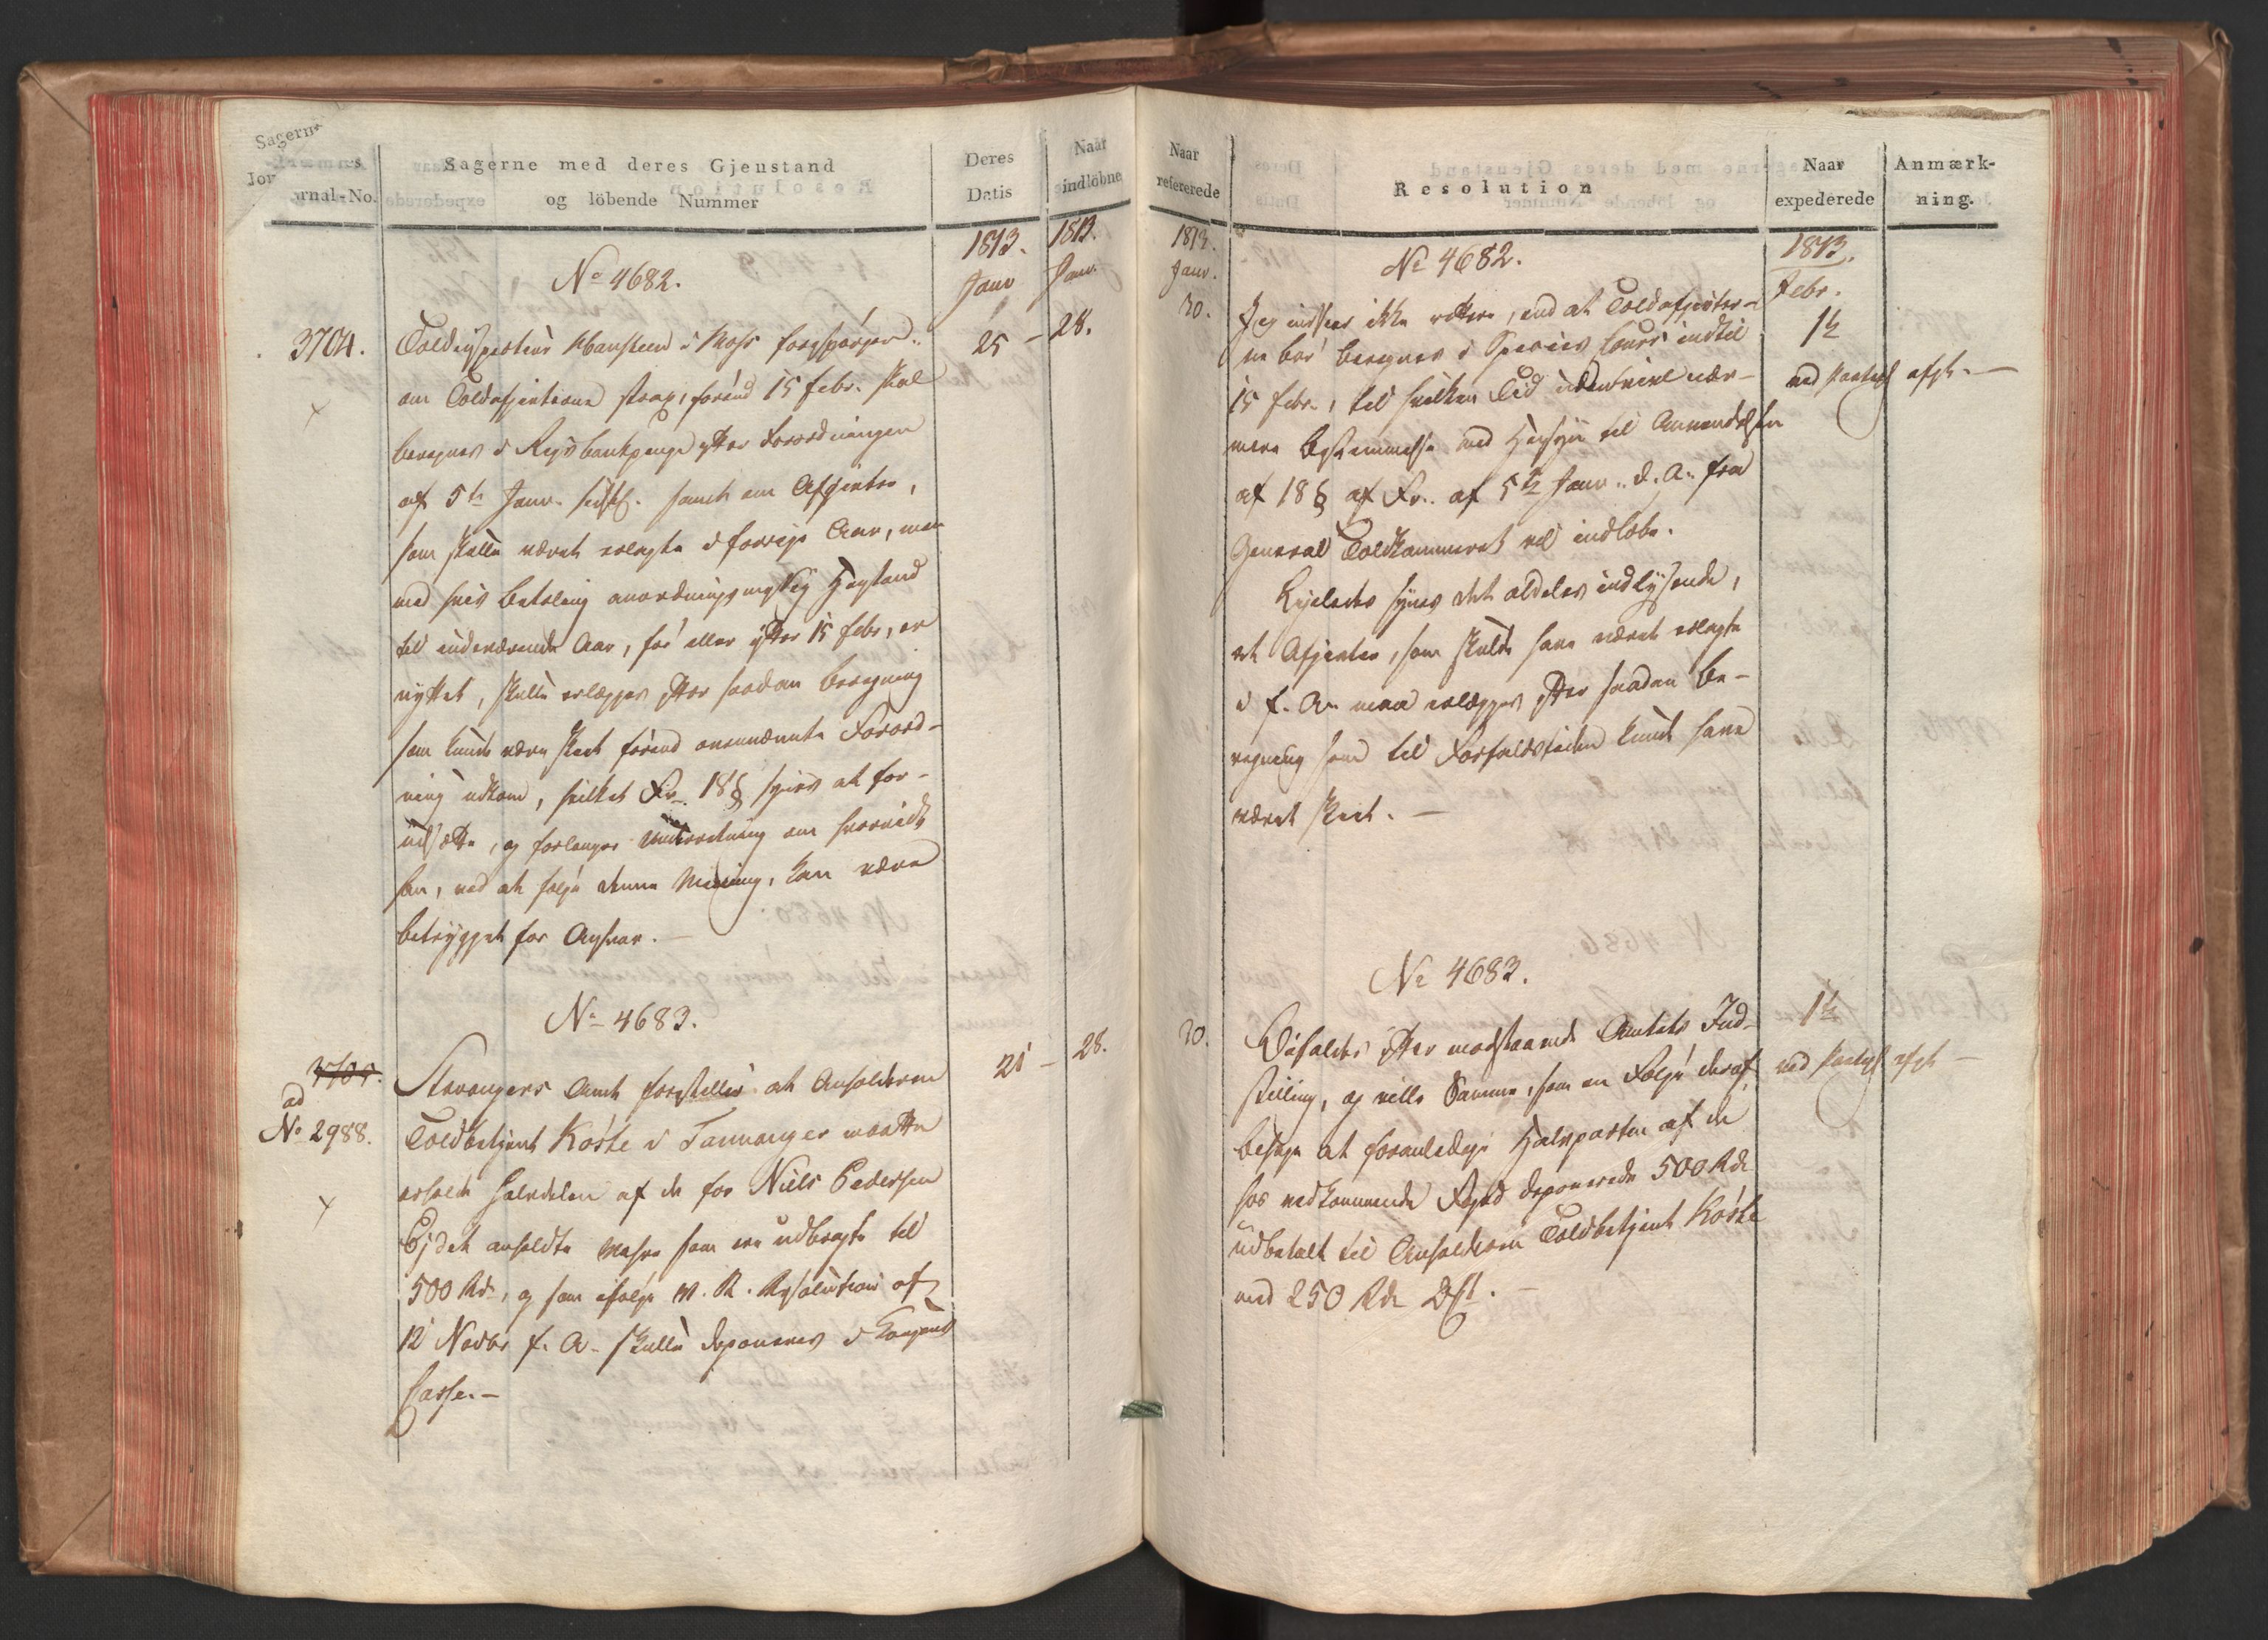 Sagernes
Jor
urnal-No.
Sagerne med deres Gjenstand
og löbende Nummer
Deres
Datis
Naar
indlöbne
1813.
Janr
1813.
Janr.
No 4682.
3704.
Toldinspecteur Hansteen i Moss forespørger
25 –
28.
om Toldafgivterne strax, förend 15 Febr. skal
beregnes i Rigsbankpenge efter Forordningen
af 5te Janr. sidstl. samt om Afgivter,
som skulle været erlagte i forrige Aar, men
med hvis Betaling anordningsmessig Henstand
til indeværende Aar, før eller efter 15 Febr, er
nyttet, skulle erlægges efter saadan Beregning
som kunde være skeet förend ovennævnte Forord-
ning udkom, hvilket Fr. 18 § synes at for-
udsætte, og forlanger Underretning om hvorvidt
han, ved at følge denne Mening, kan være
betrygget for Ansvar. –
No 4683.
3705.
ad
No 2988.
Stavangers Amt forestiller at Anholderen
21 –
28.
Toldbetjent Köste i Tananger maatte
erholde Halvdelen af de for Niels Pedersen
Ejdet anholdte Vahre som ere udbragte til
500 Rdr, og som ifølge M. R. Resolution af
12 Novbr f. A. skulle deponeres i Kongens
Casse. –
Naar
refererede
Resolution
Naar
expederede
Anmærk-
ning.
1813.
Janr.
1813.
Febr.
No 4682.
30.
Jeg indseer ikke rettere, end at Toldafgivter-
ne bör beregnes i Species Cours indtil
1te
15 Febr., til hvilken Tid udentvivl nær-
ved Paategn. afgt. –
mere Bestemmelse med Hensyn til Anvendelsen
af 18 § af Fr. af 5te Janr. d. A. fra
General Toldkammeret vil indløbe.
Ligeledes synes det aldeles indlysende,
at Afgivter, som skulde have været erlagte
i f. A. maa erlægges efter saadan Be-
regning som til Forfaldstiden kunde have
været skeet. –
No 4683.
30.
Bifaldes efter modstaaende Amtets Ind-
1te
stilling, og ville Samme, som en Følge deraf,
ved Paategn. afgt –
besørge at foranledige Halvparten af de
hos vedkommende Foged deponerede 500 Rdr
udbetalt til Anholderen Toldbetjent Köste
med 250 Rdr DCt. –